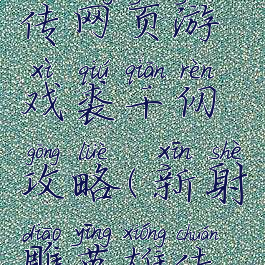 传网页游
xì qiú qiān rèn
戏裘千仞
gōng lüè   xīn shè
攻略(新射
diāo yīng xióng chuán
雕英雄传